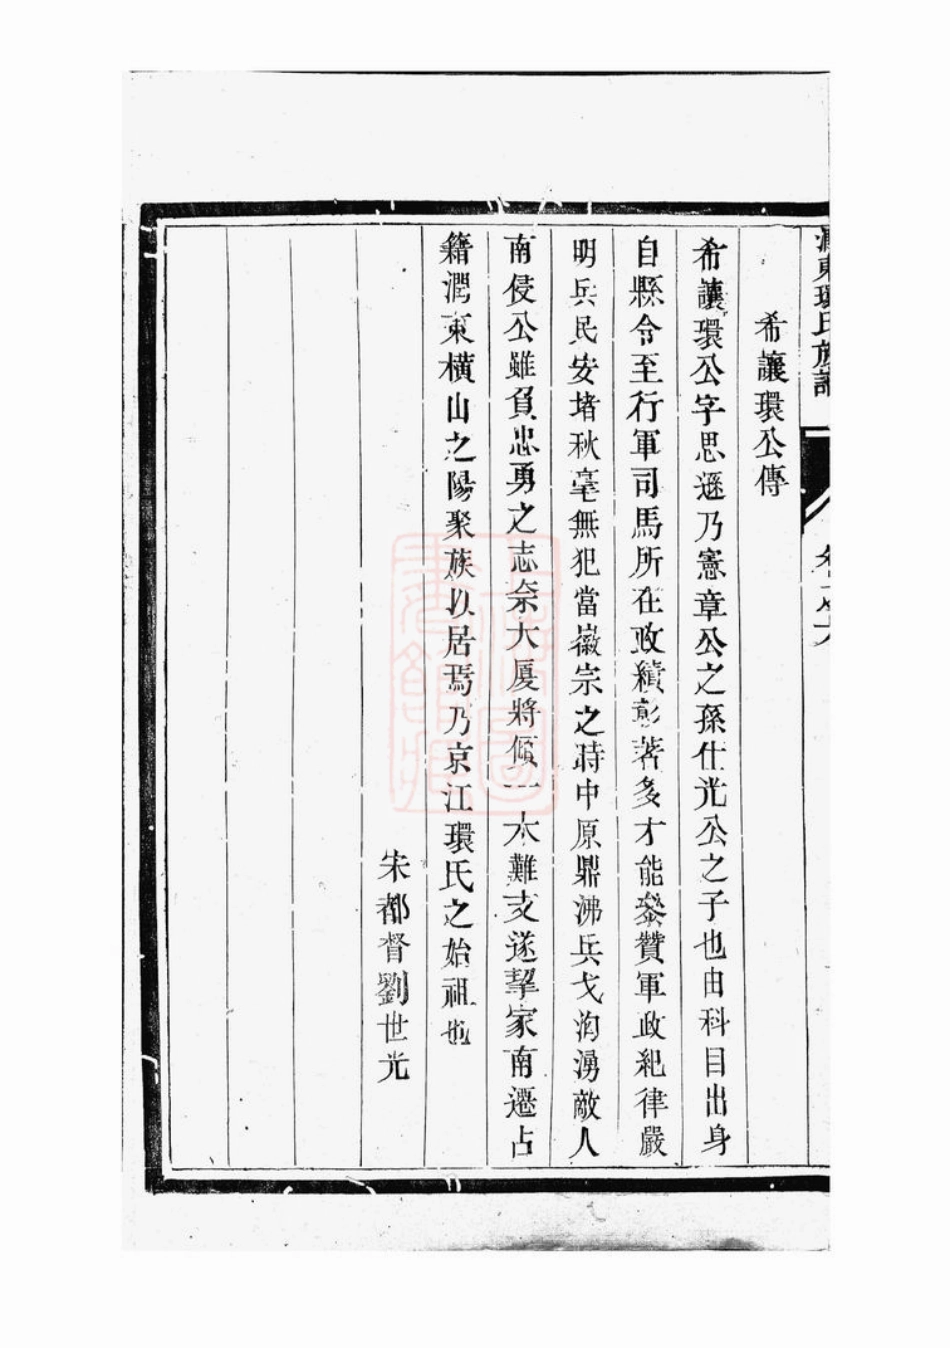 潤東環氏族譜
希讓環公傳
希讓環公字思遜乃憲章公之孫仕光公之子也由科目出身
自縣令至行軍司馬所在政績彰著多才能叅贊軍政紀律嚴
明兵民安堵秋毫無犯當徽宗之時中原鼎沸兵戈洶湧敵人
南侵公雖負忠勇之志奈大厦將傾一木難支遂挈家南遷占
籍潤東橫山之陽聚族以居焉乃京江環氏之始祖也
宋都督劉世光